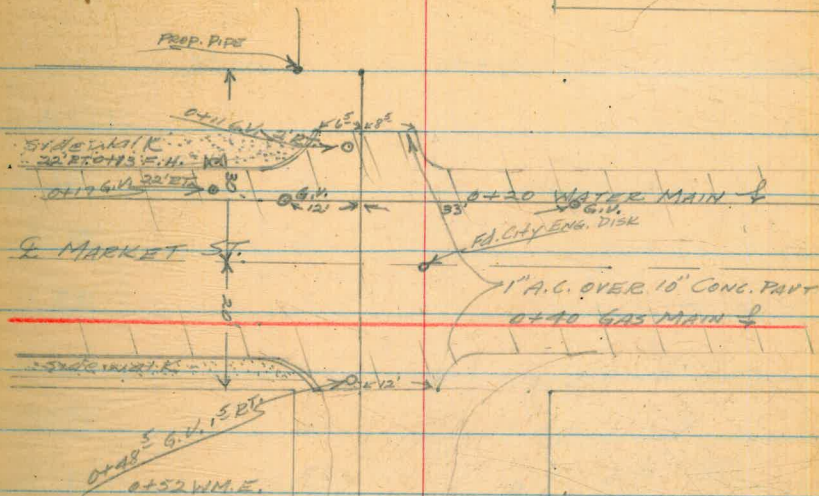 PROP. PIPE
0+11 G.V. 2' RT.
6⁵ 8⁵
Sidewalk
22' RT. 0+13 F.H.
30
0+17 G.V. 22' RT.
G.V.
12'
33'
0+20 WATER MAIN ⅊
G.V.
Fd. City Eng. Disk
℄ MARKET ST.
1" A.C. OVER 10" CONC. PAVT
20
0+40 GAS MAIN ⅊
Sidewalk
12'
0+48⁵ G.V. 1⁵ RT.
0+52 W.M.E.